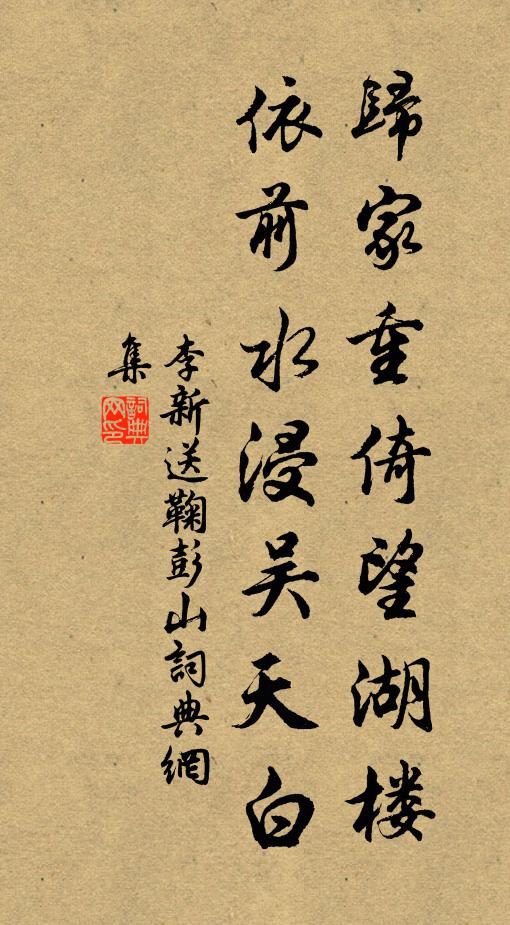 歸家重倚望湖楼
依前水浸吴天白
李新送鞠彭山詞典網
集
詞典网印